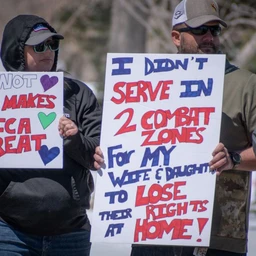 NOT
MAKES
CCA
BEAT
I DIDN'T
SERVE IN
2 COMBAT
ZONES
FOR MY
WIFE & DAUGHTER
TO LOSE
THEIR RIGHTS
AT HOME!